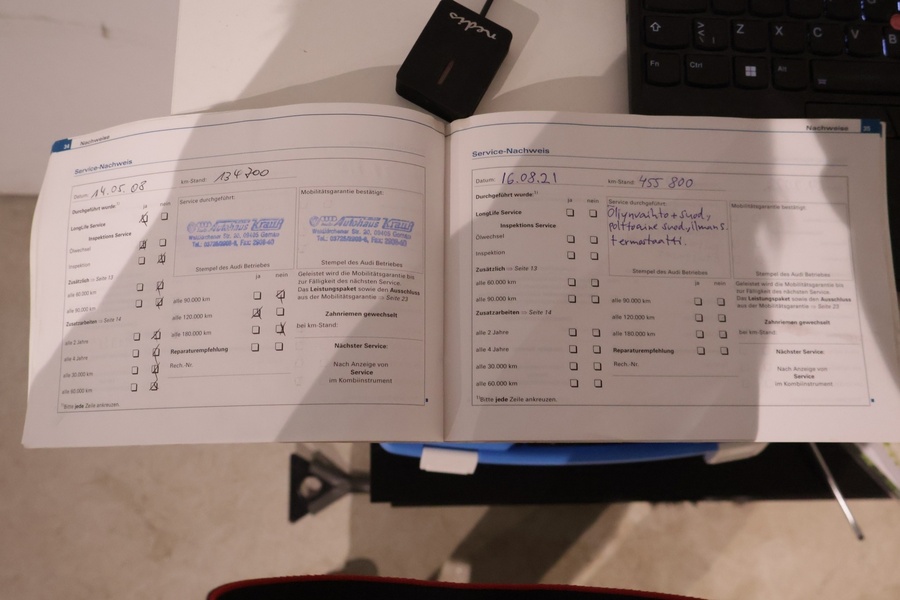 nedis
Z
X
C
V
B
Fn
Ctrl
Alt
34 Nachweise
Service-Nachweis
Datum: 14.05.08
km-Stand: 134700
Durchgeführt wurde:1)
ja nein
LongLife Service
Inspektions Service
Ölwechsel
Inspektion
Zusätzlich ⇒ Seite 13
alle 60.000 km
alle 90.000 km
Zusatzarbeiten ⇒ Seite 14
alle 2 Jahre
alle 4 Jahre
alle 30.000 km
alle 60.000 km
1)Bitte jede Zeile ankreuzen.
Service durchgeführt:
Autohaus Krauß
Stempel des Audi Betriebes
ja nein
alle 90.000 km
alle 120.000 km
alle 180.000 km
Reparaturempfehlung
Rech.-Nr.
Mobilitätsgarantie bestätigt:
Autohaus Krauß
Stempel des Audi Betriebes
Geleistet wird die Mobilitätsgarantie bis
zur Fälligkeit des nächsten Service.
Das Leistungspaket sowie den Ausschluss
aus der Mobilitätsgarantie ⇒ Seite 23
Zahnriemen gewechselt
bei km-Stand:
Nächster Service:
Nach Anzeige von
Service
im Kombiinstrument
Nachweise 35
Service-Nachweis
Datum: 16.08.21
km-Stand: 455 800
Durchgeführt wurde:1)
ja nein
LongLife Service
Inspektions Service
Ölwechsel
Inspektion
Zusätzlich ⇒ Seite 13
alle 60.000 km
alle 90.000 km
Zusatzarbeiten ⇒ Seite 14
alle 2 Jahre
alle 4 Jahre
alle 30.000 km
alle 60.000 km
1)Bitte jede Zeile ankreuzen.
Service durchgeführt:
Öljynvaihto + suod,
polttoaine suod, ilman s.
termostaatti.
Stempel des Audi Betriebes
ja nein
alle 90.000 km
alle 120.000 km
alle 180.000 km
Reparaturempfehlung
Rech.-Nr.
Mobilitätsgarantie bestätigt:
Stempel des Audi Betriebes
Geleistet wird die Mobilitätsgarantie bis
zur Fälligkeit des nächsten Service.
Das Leistungspaket sowie den Ausschluss
aus der Mobilitätsgarantie ⇒ Seite 23
Zahnriemen gewechselt
bei km-Stand:
Nächster Service:
Nach Anzeige von
Service
im Kombiinstrument